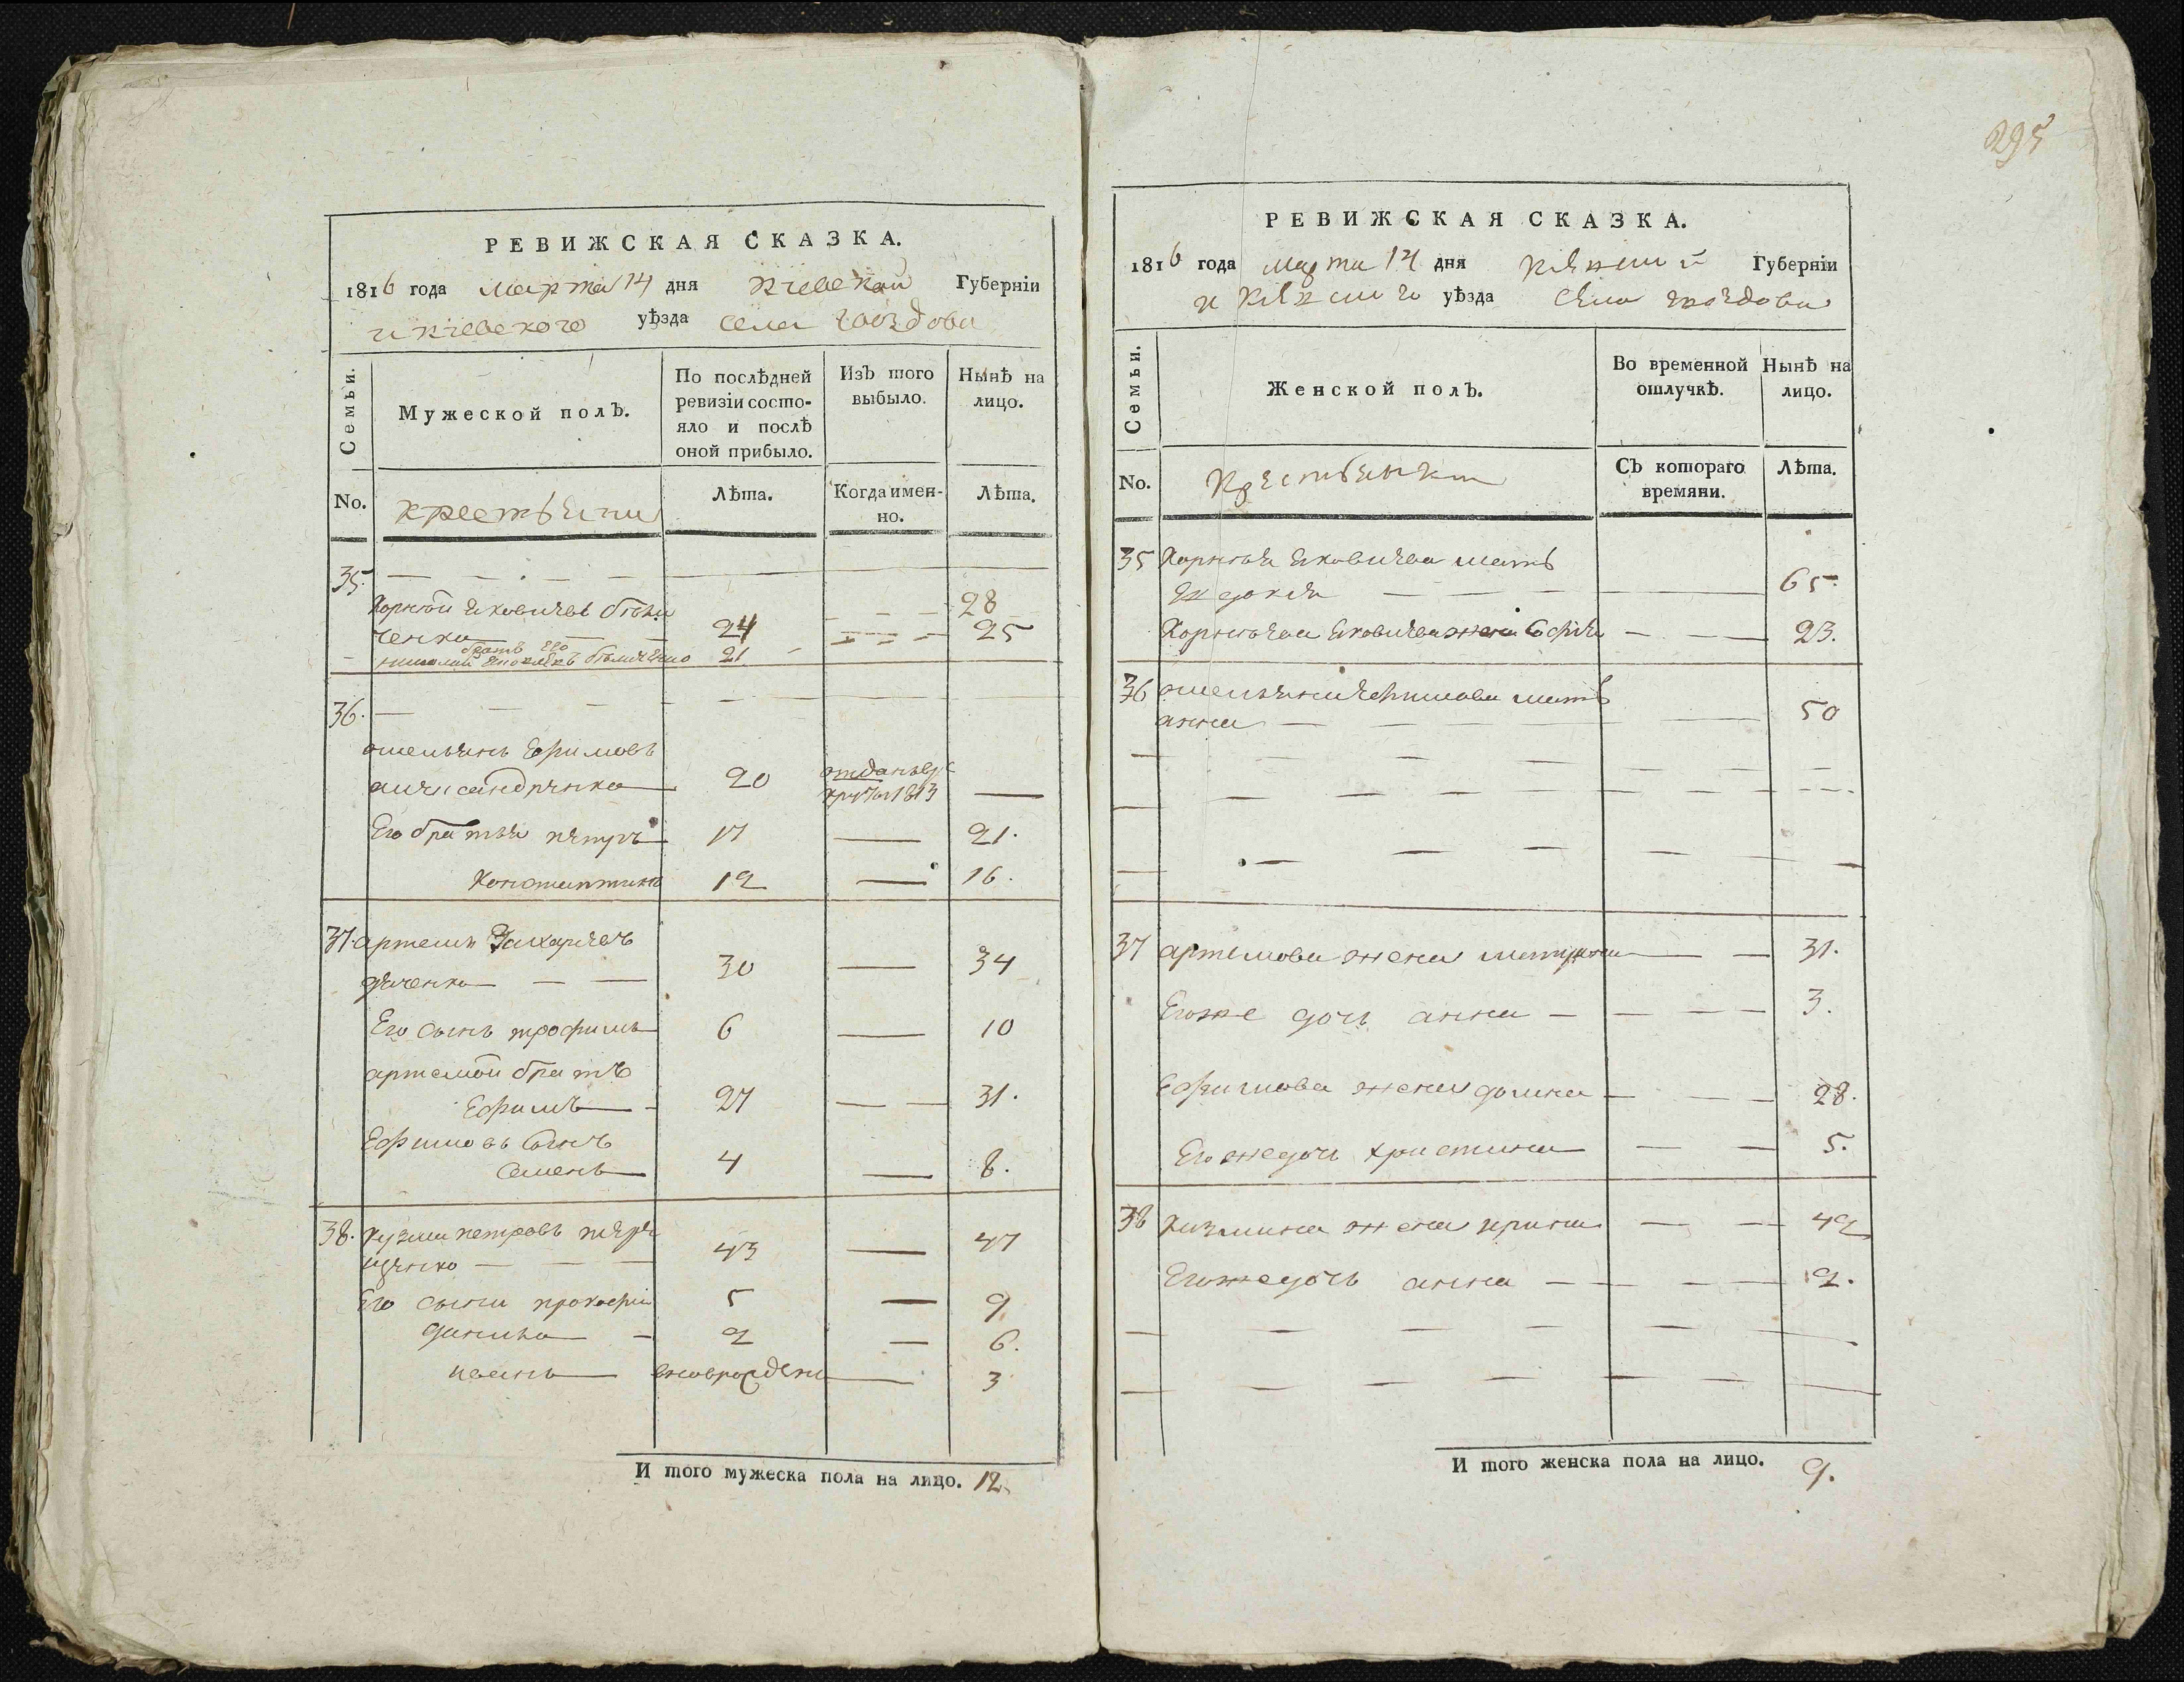 295
РЕВИЖСКАЯ СКАЗКА.
1816 года Марта 14 дня Киевской Губерніи
и Киевского уѣзда села Гвоздова
Семьи.
Мужеской полЪ.
По послѣдней ревизіи состо-
яло и послѣ
оной прибыло.
ИзЪ того
выбыло.
НынѢ на
лицо.
No.
крестьяни
ЛѢта.
Когда имен-
но.
ЛѢта.
35
Корнѣй Яковлевъ
ченко 24 28
братъ его
21 25
36.
омельянъ Ефимовъ
александренко 20 отданъ
1813
Его братья петръ 17 21.
Константинъ 12 16.
37. артемъ Захариевъ
дяченко 30 34
Его сынъ трофимъ 6 10
артемов братъ
Ефимъ 27 31.
Ефимовъ сынъ
Семенъ 4 8.
38. кузма петровъ
43 47
Его сыны прокофий 5 9
данила 2 6.
иванъ вновь рожден 3
И того мужеска пола на лицо. 12.
РЕВИЖСКАЯ СКАЗКА.
1816 года марта 14 дня Киевской Губерніи
и Киевского уѢзда села гвоздова
Семьи.
Женской полЪ.
Во временной
отлучкѢ.
НынѢ на
лицо.
No.
СЪ котораго
времяни.
ЛѢта.
35 Корнѣя Яковлева мать
65.
жена София 23.
36 омельяна Ефимова мать
анна 50
37 артемова жена матрона 31.
Егоже дочь анна 3.
Ефимова жена домна 28.
Егоже дочь христина 5.
38 Кузмина жена ирина 42
Егоже дочь анна 2.
И того женска пола на лицо. 9.